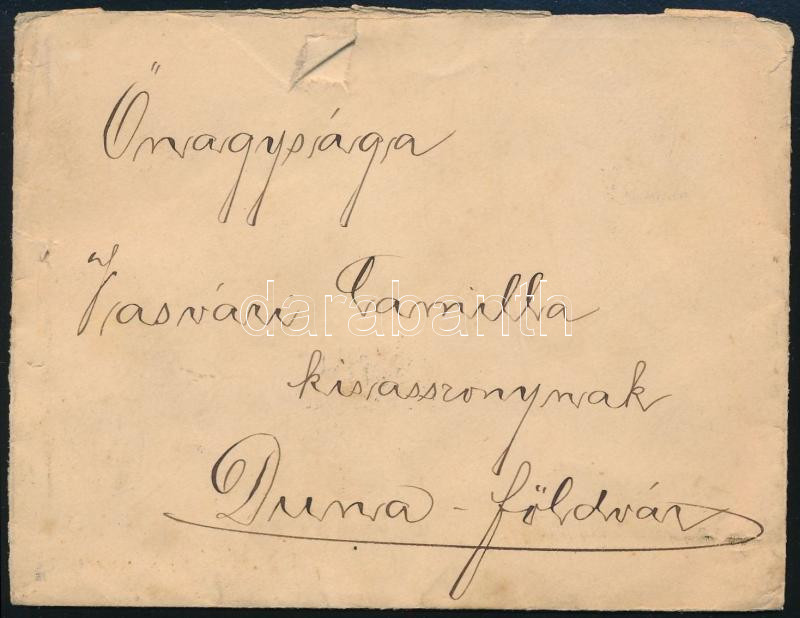 Őnagysága
Vasvári Camilla
kisasszonynak
Duna-földvár
darabanth